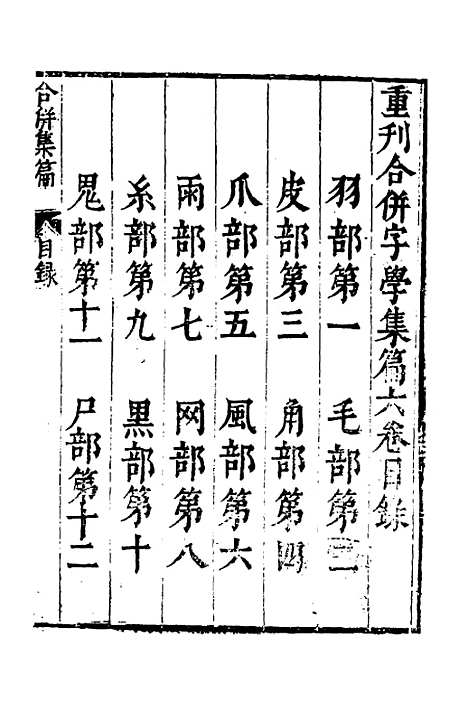 重刊合併字學集篇六卷目錄
羽部第一　毛部第二
皮部第三　角部第四
爪部第五　風部第六
雨部第七　网部第八
糸部第九　黑部第十
鬼部第十一　尸部第十二
合併集篇　目錄